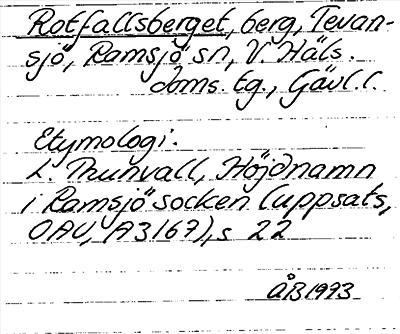 Rotfallsberget, berg, Tevan-
sjö, Ramsjö sn, V. Häls.
doms. tg., Gävl. l.
Etymologi.
L. Thunvall, Höjdnamn
i Ramsjö socken (uppsats,
OAU, A3167), s 22
ÅB 1993